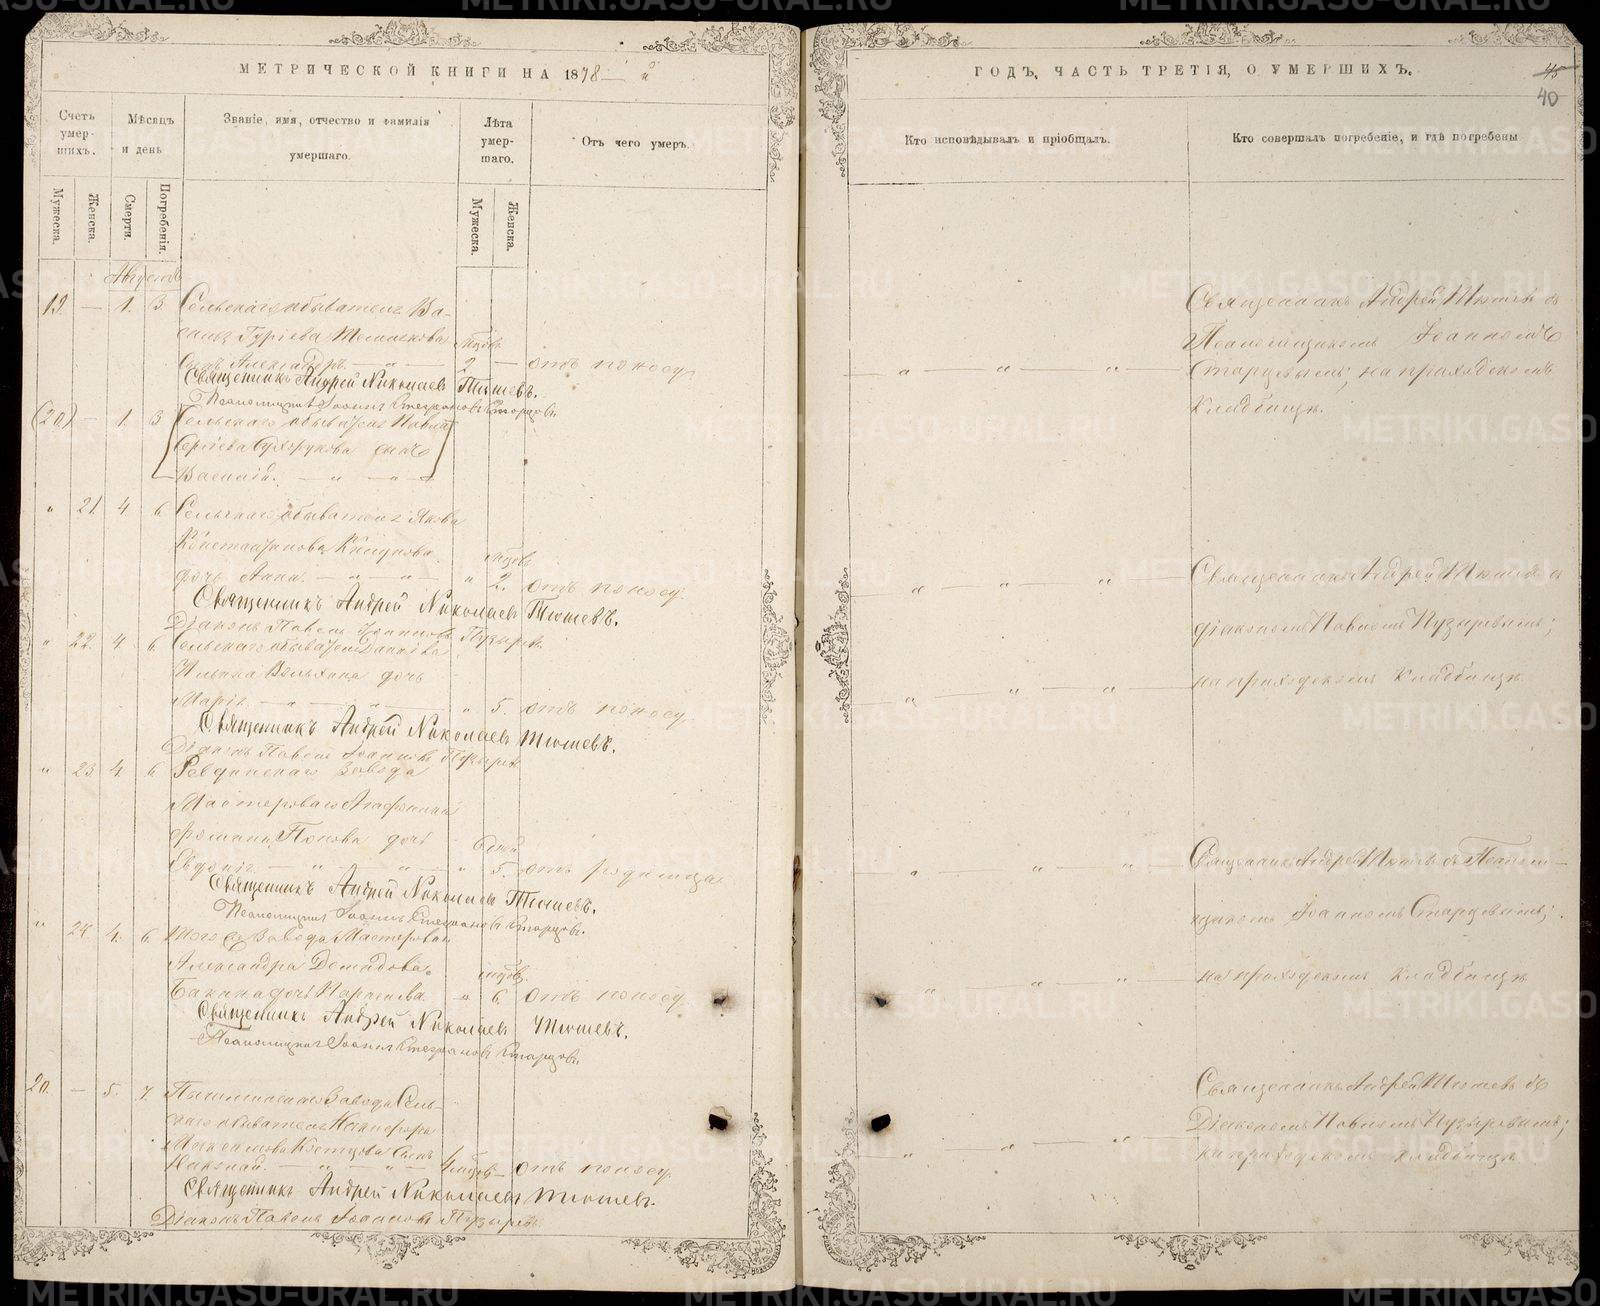 МЕТРИЧЕСКОЙ КНИГИ НА 1878 й
Счетъ умершихъ.
Мѣсяцъ и день
Званіе, имя, отчество и фамилія умершаго.
Лѣта умершаго.
Отъ чего умеръ.
Мужеска.
Женска.
Смерти.
Погребенія.
Мужеска.
Женска.
Августъ
19. — 1. 3. Сельскаго обывателя Ва-
силія Гуріева
мцовъ
сынъ Александръ. 2 — отъ поносу
Священникъ Андрей Николаевъ Тюшевъ.
Псаломщикъ Іоаннъ Стефановъ Старцовъ.
(20) — 1. 3 Сельскаго обывателя Павла
Сергіева Сухорукова сынъ
Василій.
" 21. 4. 6. Сельскаго обывателя Якова
Константинова
мцовъ
дочь Анна. " 2. отъ поносу.
Священникъ Андрей Николаевъ Тюшевъ.
Діаконъ Павелъ Іоанновъ Пузыревъ.
" 22. 4. 6. Сельскаго обывателя
дочь
Марія. " 5. отъ поносу.
Священникъ Андрей Николаевъ Тюшевъ.
Діаконъ Павелъ Іоанновъ Пузыревъ
" 23. 4. 6. Ревдинскаго Завода
Мастероваго
Попова дочь
дней
Евдокія. " 5. отъ родимца
Священникъ Андрей Николаевъ Тюшевъ.
Псаломщикъ Іоаннъ Стефановъ Старцовъ.
" 24. 4. 6. Того же Завода Мастероваго
Александра Демидова
мцовъ
дочь " 6. отъ поносу.
Священникъ Андрей Николаевъ Тюшевъ.
Псаломщикъ Іоаннъ Стефановъ Старцовъ.
20. — 5. 7. Пышминскаго Завода Сель-
скаго обывателя Никифора
сынъ
Николай. мцовъ — отъ поносу.
Священникъ Андрей Николаевъ Тюшевъ.
Діаконъ Павелъ Іоанновъ Пузыревъ.
ГОДЪ, ЧАСТЬ ТРЕТІЯ, О УМЕРШИХЪ.
45
40
Кто исповѣдывалъ и пріобщалъ.
Кто совершалъ погребеніе, и гдѣ погребены
Священникъ Андрей Тюшевъ съ
Псаломщикомъ Іоанномъ
Старцовымъ; на приходскомъ
кладбищѣ.
Священникъ Андрей Тюшевъ съ
діакономъ Павломъ Пузыревымъ;
на приходскомъ кладбищѣ.
Священникъ Андрей Тюшевъ съ Псалом-
щикомъ Іоанномъ Старцовымъ;
на приходскомъ кладбищѣ
Священникъ Андрей Тюшевъ съ
Діакономъ Павломъ Пузыревымъ;
на приходскомъ кладбищѣ
METRIKI.GASO-URAL.RU